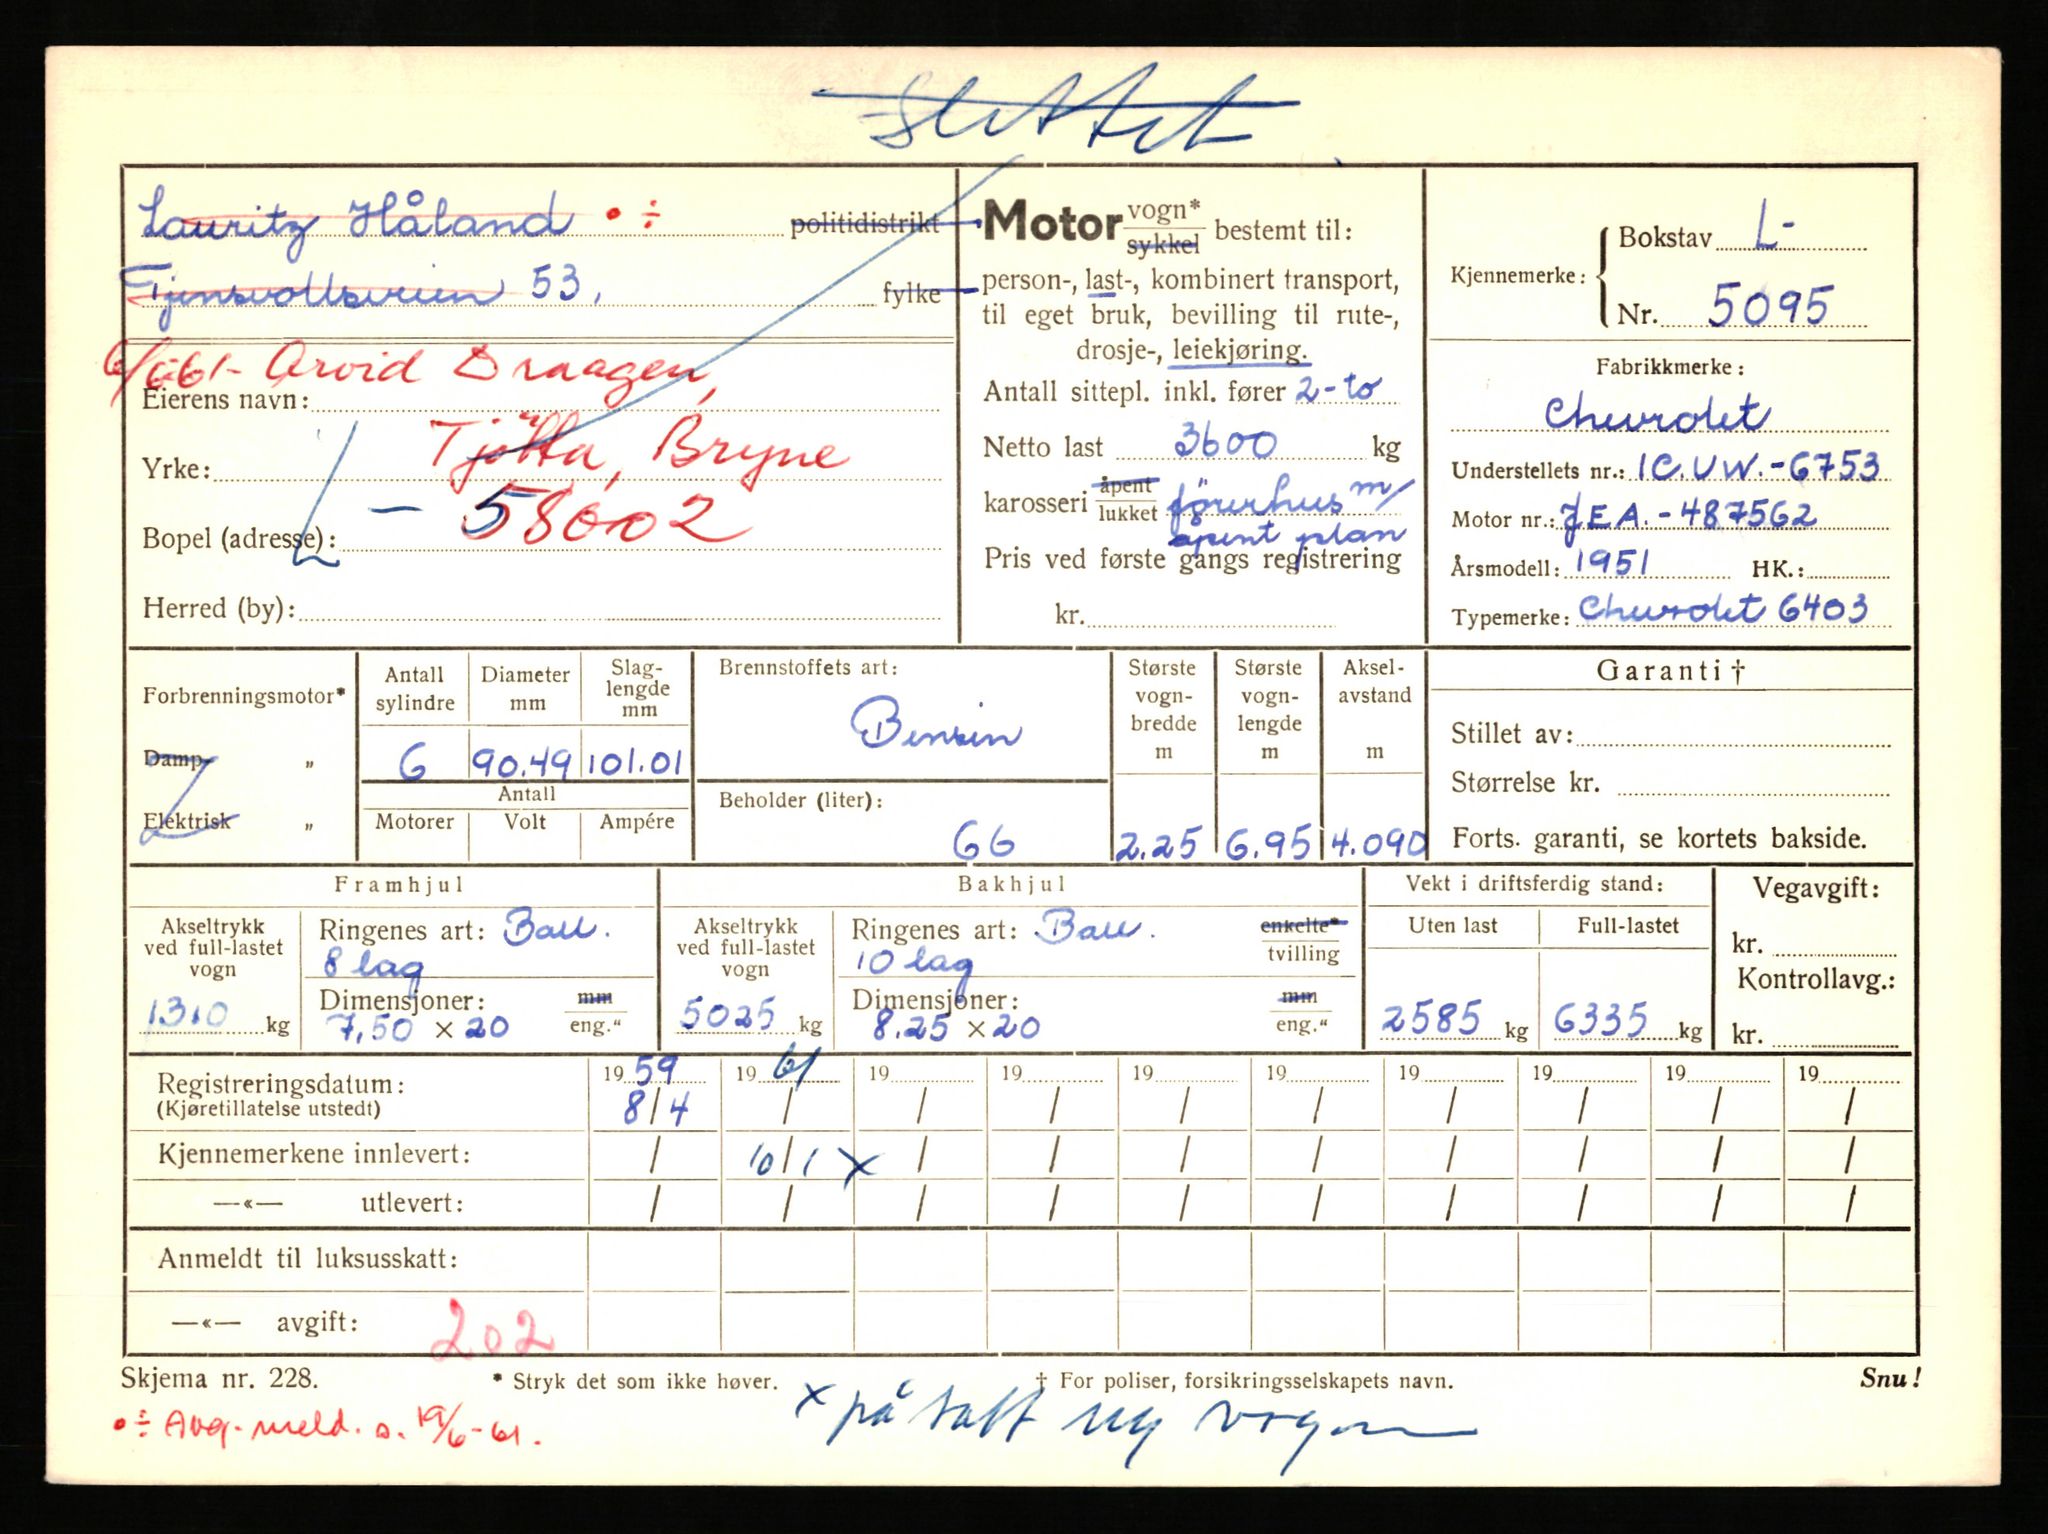 Slettet
Lauritz Håland • ÷ politidistrikt
Tjensvollsveien 53, fylke
Arvid Draagen,
Eierens navn:
Tjøtta, Bryne
Yrke:
L - 58002
Bopel (adresse):
Herred (by):
Motor vogn* sykkel bestemt til:
person-, last-, kombinert transport,
til eget bruk, bevilling til rute-,
drosje-, leiekjøring.
Antall sittepl. inkl. fører 2-to
Netto last 3600 kg
karosseri åpent lukket førerhus m/
åpent plan
Pris ved første gangs registrering
kr.
Kjennemerke: Bokstav L-
Nr. 5095
Fabrikkmerke:
Chevrolet
Understellets nr.: 1C.UW.-6753
Motor nr.: JEA.-487562
Årsmodell: 1951 HK.:
Typemerke: Chevrolet 6403
Forbrenningsmotor*
Damp- „
Elektrisk „
Antall sylindre Diameter mm Slag-lengde mm
6 90.49 101.01
Antall
Motorer Volt Ampére
Brennstoffets art:
Bensin
Beholder (liter):
66
Største vogn-bredde m Største vogn-lengde m Aksel-avstand m
2.25 6.95 4.090
Garanti †
Stillet av:
Størrelse kr.
Forts. garanti, se kortets bakside.
Framhjul
Akseltrykk ved full-lastet vogn
1310 kg
Ringenes art: Ball.
8 lag
Dimensjoner: mm
7,50 × 20 eng."
Bakhjul
Akseltrykk ved full-lastet vogn
5025 kg
Ringenes art: Ball. enkelte*
10 lag tvilling
Dimensjoner: mm
8.25 × 20 eng."
Vekt i driftsferdig stand:
Uten last Full-lastet
2585 kg 6335 kg
Vegavgift:
kr.
Kontrollavg.:
kr.
Registreringsdatum: 19 59 19 61 19 19 19 19 19 19 19 19
(Kjøretillatelse utstedt) 8/4 / / / / / / / / /
Kjennemerkene innlevert: / 10/1 x / / / / / / / /
—«— utlevert: / / / / / / / / / /
Anmeldt til luksusskatt:
—«— avgift: 202
Skjema nr. 228. * Stryk det som ikke høver. † For poliser, forsikringsselskapets navn. Snu!
•÷ Avg.meld. s. 19/6-61.
x på satt ny vogn